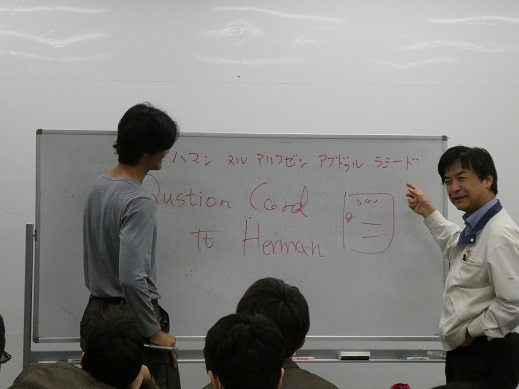 ハマン ヌル アリフゼン アブドゥル ラシード
Qustion Card
To Herman